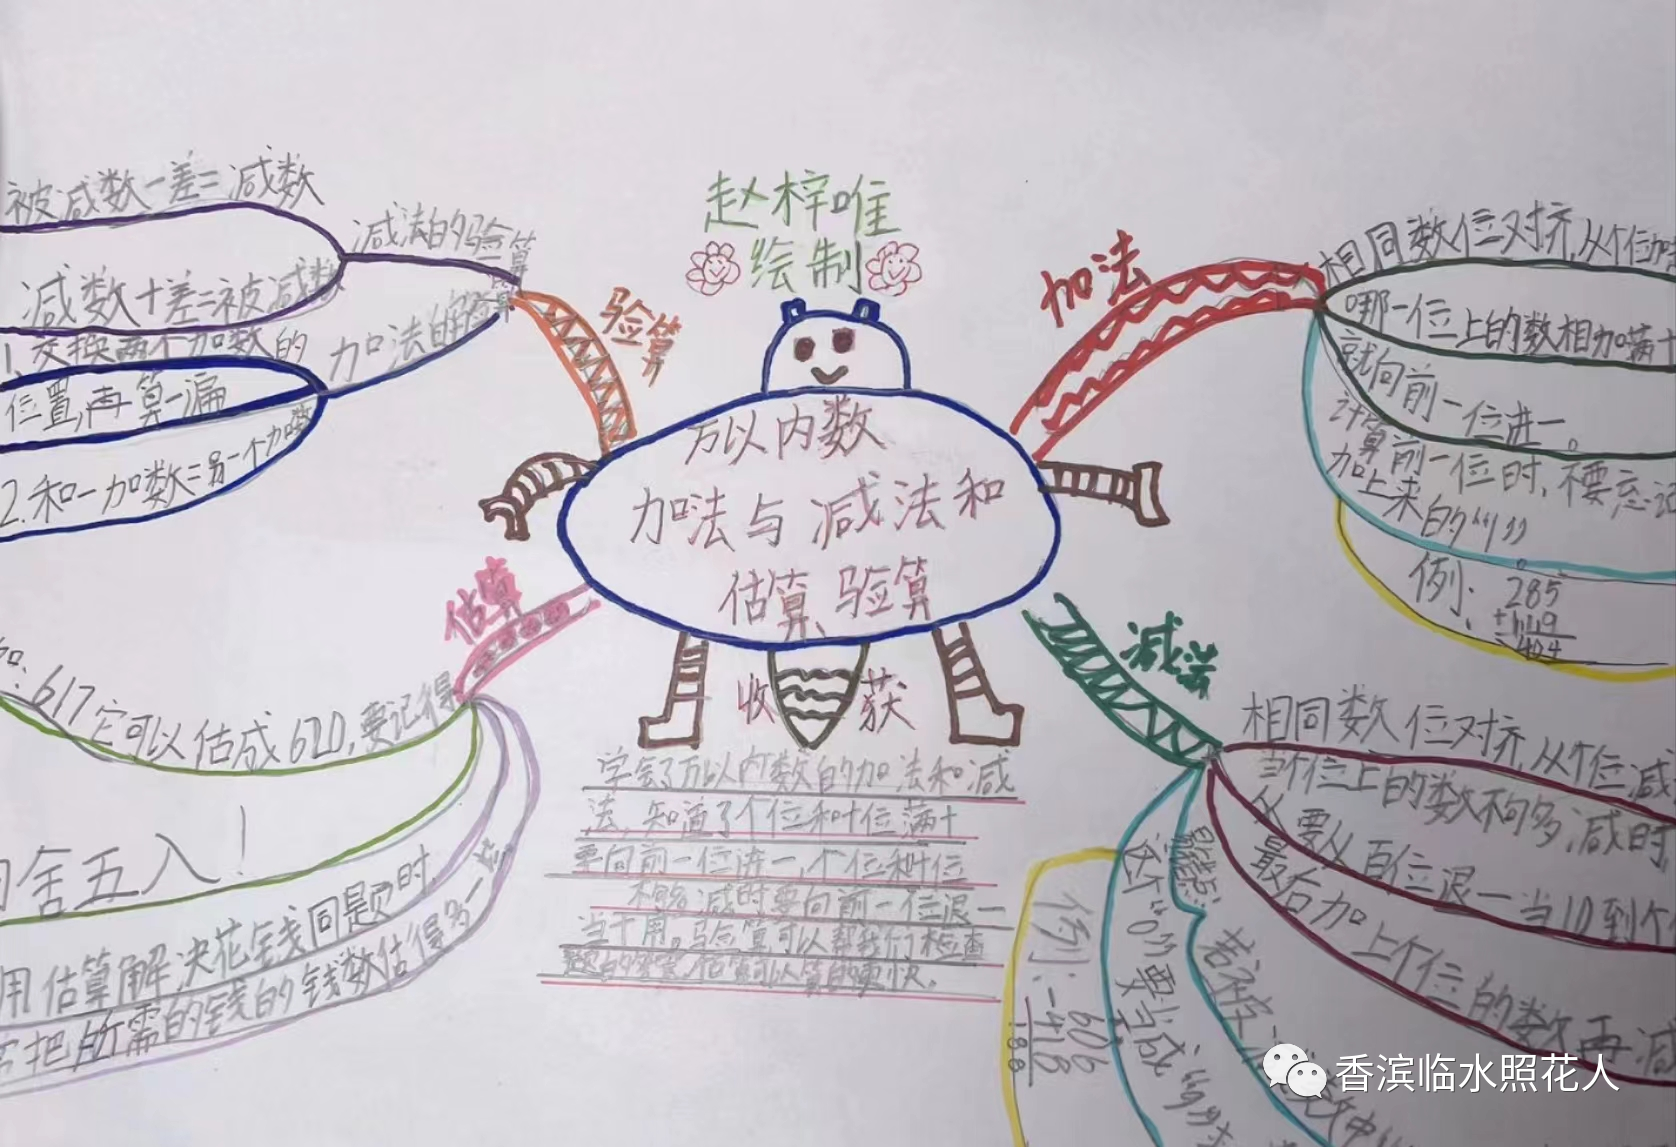 赵梓唯
绘制
万以内数
加法与减法和
估算、验算
验算
减法的验算
被减数-差=减数
减数+差=被减数
加法的验算
1.交换两个加数的
位置,再算一遍
2.和-加数=另一个加数
加法
相同数位对齐,从个位加
哪一位上的数相加满十
就向前一位进一。
计算前一位时,不要忘记
加上来的“1”
例:
285
+119
404
减法
相同数位对齐,从个位减
当个位上的数不够减时
要从百位退一当10到个
最后加上个位的数再减
这个“0”要当成
例:
606
-418
188
估算
617它可以估成620,要记得
舍五入!
用估算解决花钱问题时,
把所需的钱的钱数估得多一些
收获
学会了万以内数的加法和减
法,知道了个位和十位满十
要向前一位进一,个位和十位
不够减时要向前一位退一
当十用。验算可以帮我们检查
题的答案,估算可以算的更快。
香滨临水照花人